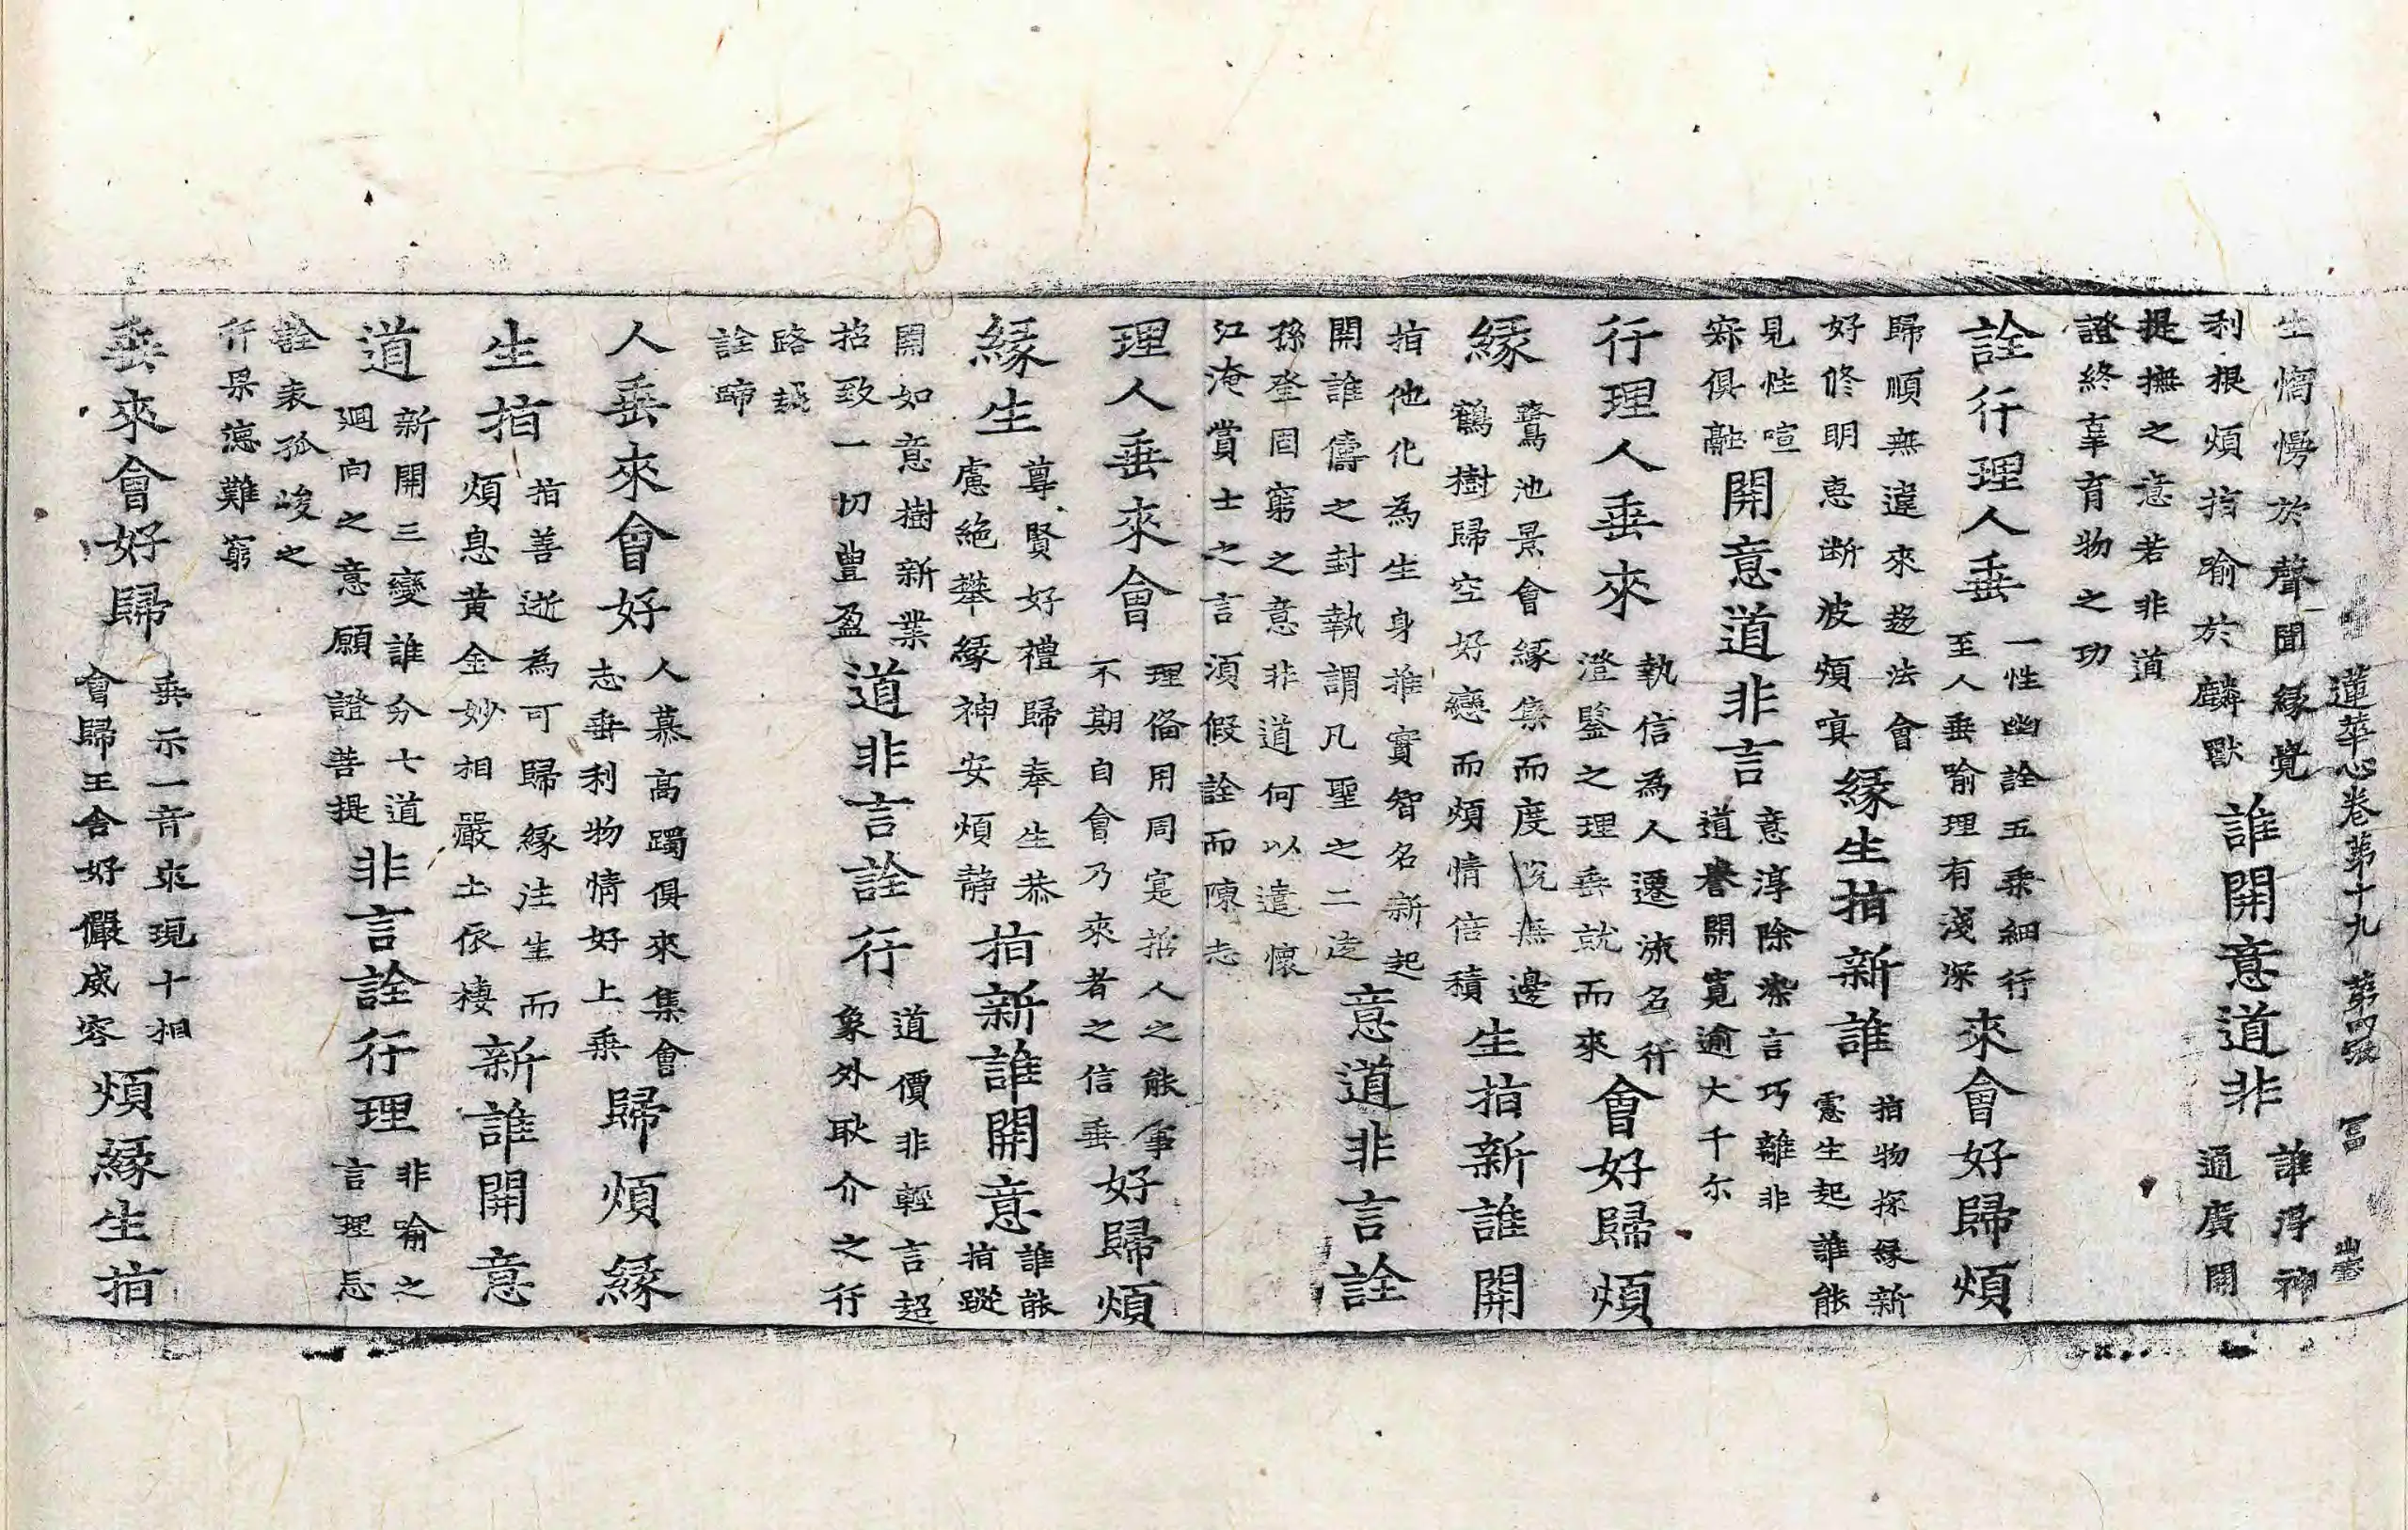 蓮華心卷第十九 第四張 冨
生惰慢於聲聞緣覺
利根煩指喻於麟獸
誰開意道非
誰淂神
通廣開
提撫之意若非道
證終辜育物之功
詮行理人垂
一性幽詮五乘細行
至人垂喻理有淺深
來會好歸煩
歸順無違來趍法會
好修明惠断波煩嗔
緣生指新誰
指物探緣新
慿生起誰能
見性喧
寂俱融
開意道非言
意淳除染言巧離非
道譽開寬逾大千尒
行理人垂來
執信為人遷流名行
澄鑒之理垂就而來
會好歸煩
緣
鷲池景會緣集而度脫無邊
鶴樹歸空好戀而煩情倍積
生指新誰開
指他化為生身推實智名新起
開誰儔之封執謂凡聖之二途
意道非言詮
孫登固窮之意非道何以遣懷
江淹賞士之言須假詮而陳志
理人垂來會
理俻用周寔招人之能事
不期自會乃來者之信垂
好歸煩
緣生
尊賢好禮歸奉生恭
慮絕攀緣神安煩静
指新誰開意
誰能
指蹤
開如意樹新業
招致一切豊盈
道非言詮行
道價非輕言超
象外耿介之行
路
詮啼
人垂來會好
人慕高躅俱來集會
志垂利物情好上乘
歸煩緣
生指
指善逝為可歸緣注生而
煩息黄金妙相嚴土依棲
新誰開意
道
新開三變誰分七道
廻向之意願證菩提
非言詮行理
非喻之
言理忘
詮表孤峻之
行杲德難窮
垂來會好歸
垂示一音來現十相
會歸王舍好儼威容
煩緣生指